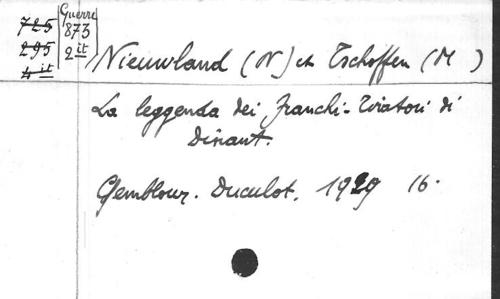 725 Guerre
295 873
4 it 2 it
Nieuwland (N) et Tschoffen (M )
La leggenda dei franchi-tiratori di
Dinant.
Gembloux. Duculot. 1929 16.